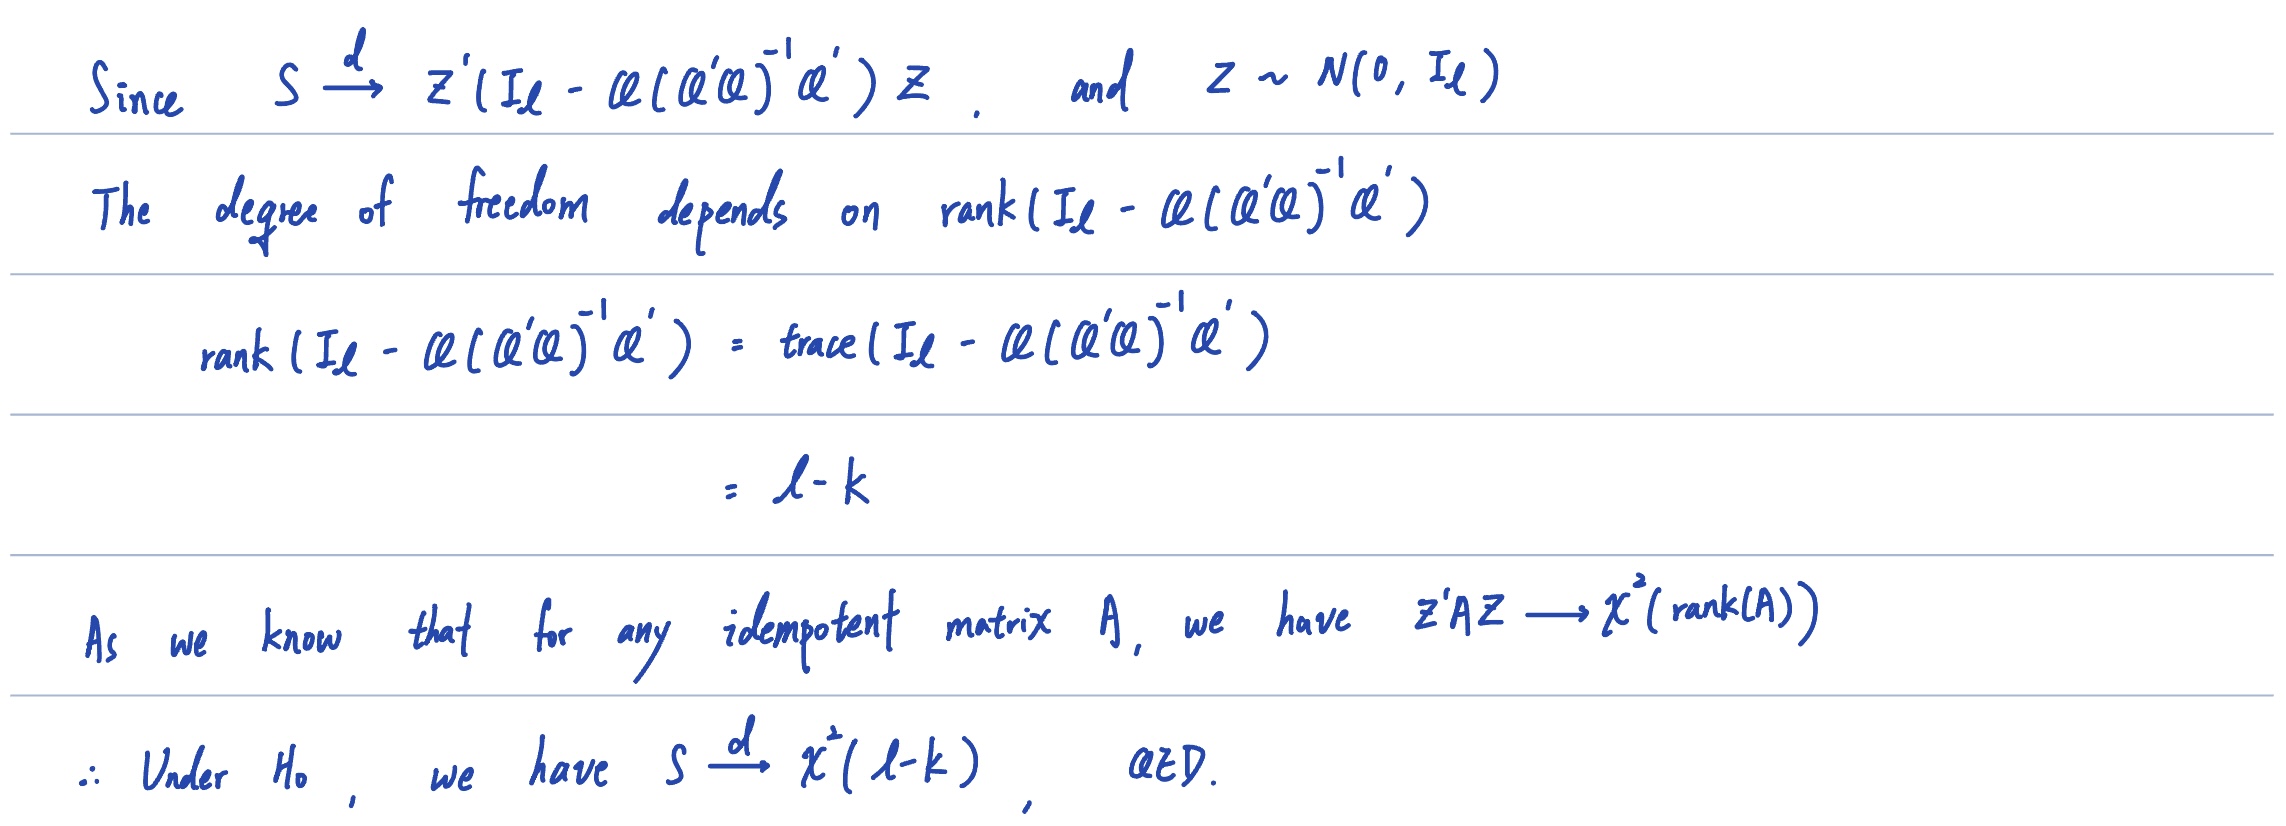 Since S →ᵈ Z'(I_ℓ - Q(Q'Q)⁻¹Q')Z , and Z ~ N(0, I_ℓ)
The degree of freedom depends on rank(I_ℓ - Q(Q'Q)⁻¹Q')
rank(I_ℓ - Q(Q'Q)⁻¹Q') = trace(I_ℓ - Q(Q'Q)⁻¹Q')
= ℓ-k
As we know that for any idempotent matrix A, we have Z'AZ → χ²(rank(A))
∴ Under H₀ , we have S →ᵈ χ²(ℓ-k) , QED.